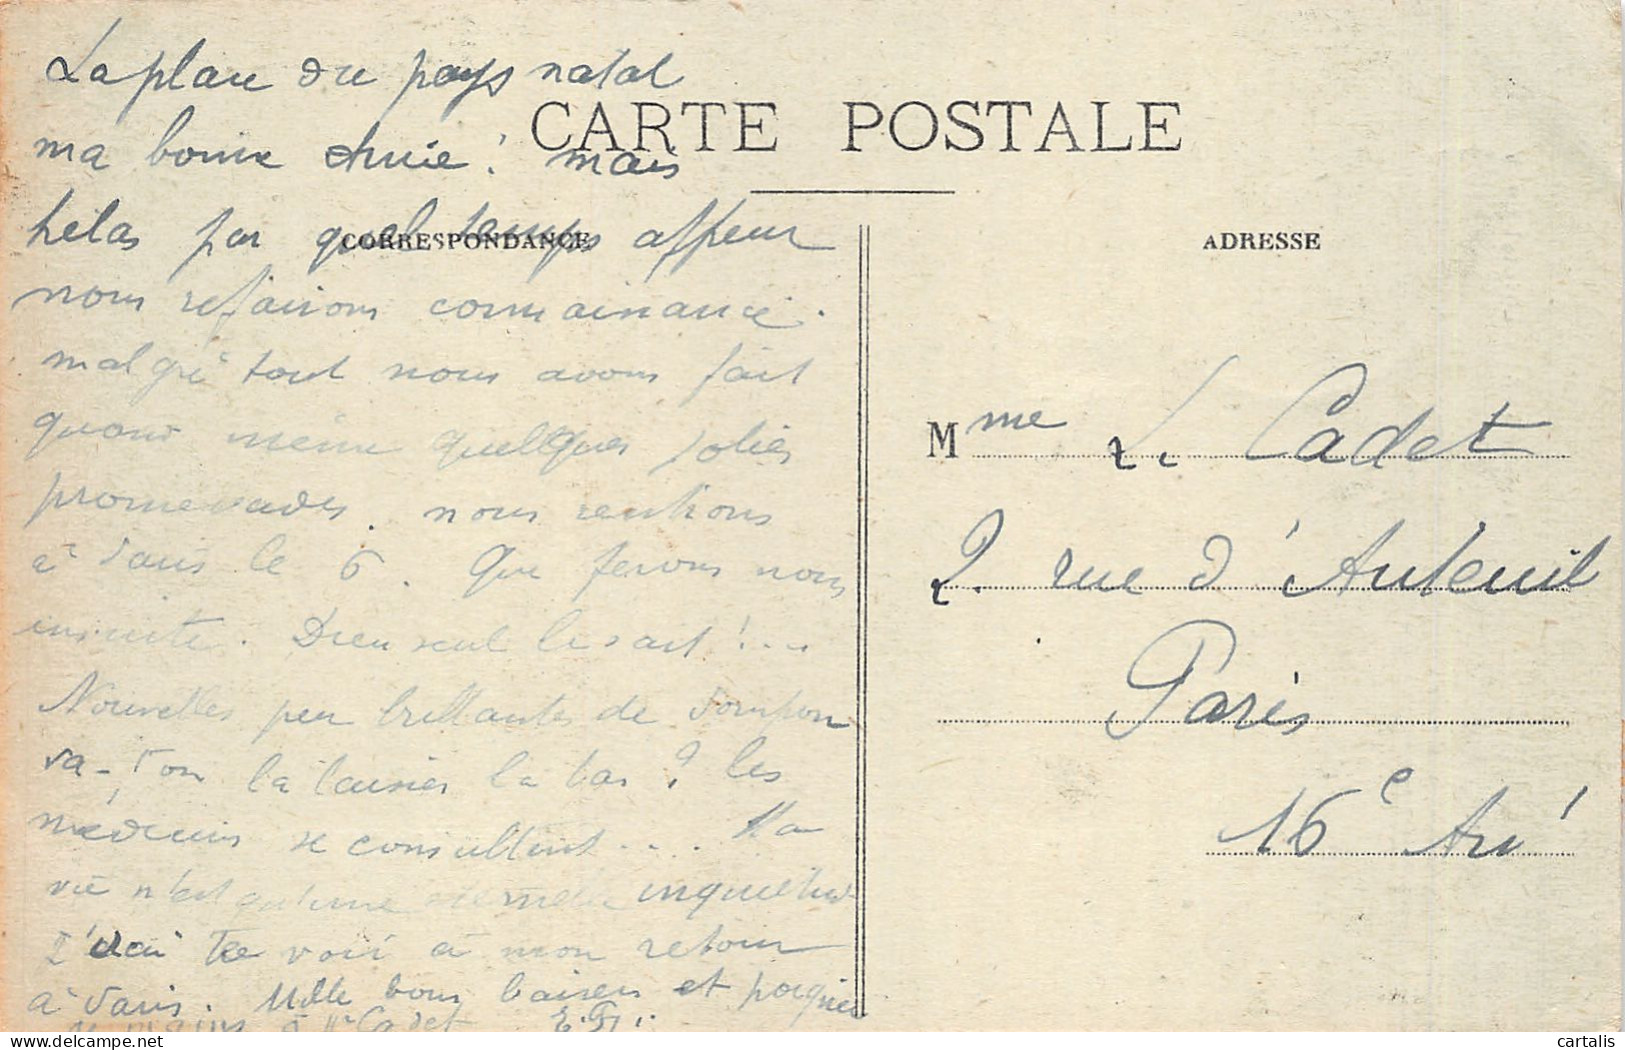 La place du pays natal
ma bonne amie! mais
CARTE POSTALE
hélas par quel temps affreux
CORRESPONDANCE
nous refaisons connaissance.
malgré tout nous avons fait
quand même quelques jolies
promenades. nous rentrons
à Paris le 6. Que ferons nous
ensuite. Dieu seul le sait!...
Nouvelles peu brillantes de
va-t'on la laisser là bas? les
médecins se consultent... Ma
vie n'est qu'une éternelle inquiétude
J'irai te voir à mon retour
à Paris. Mille bons baisers et poignées
de mains à Mr Cadet
ADRESSE
Mme L. Cadet
2 rue d'Auteuil
Paris
16e Arr
© cartalis